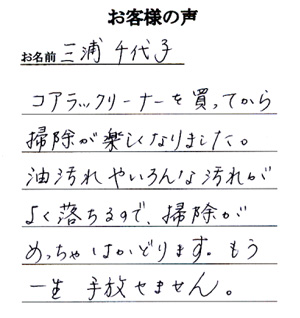 お客様の声
お名前 三浦 千代子
コアラックリーナーを買ってから
掃除が楽しくなりました。
油汚れやいろんな汚れが
よく落ちるので、掃除が
めっちゃはかどります。もう
一生 手放せません。